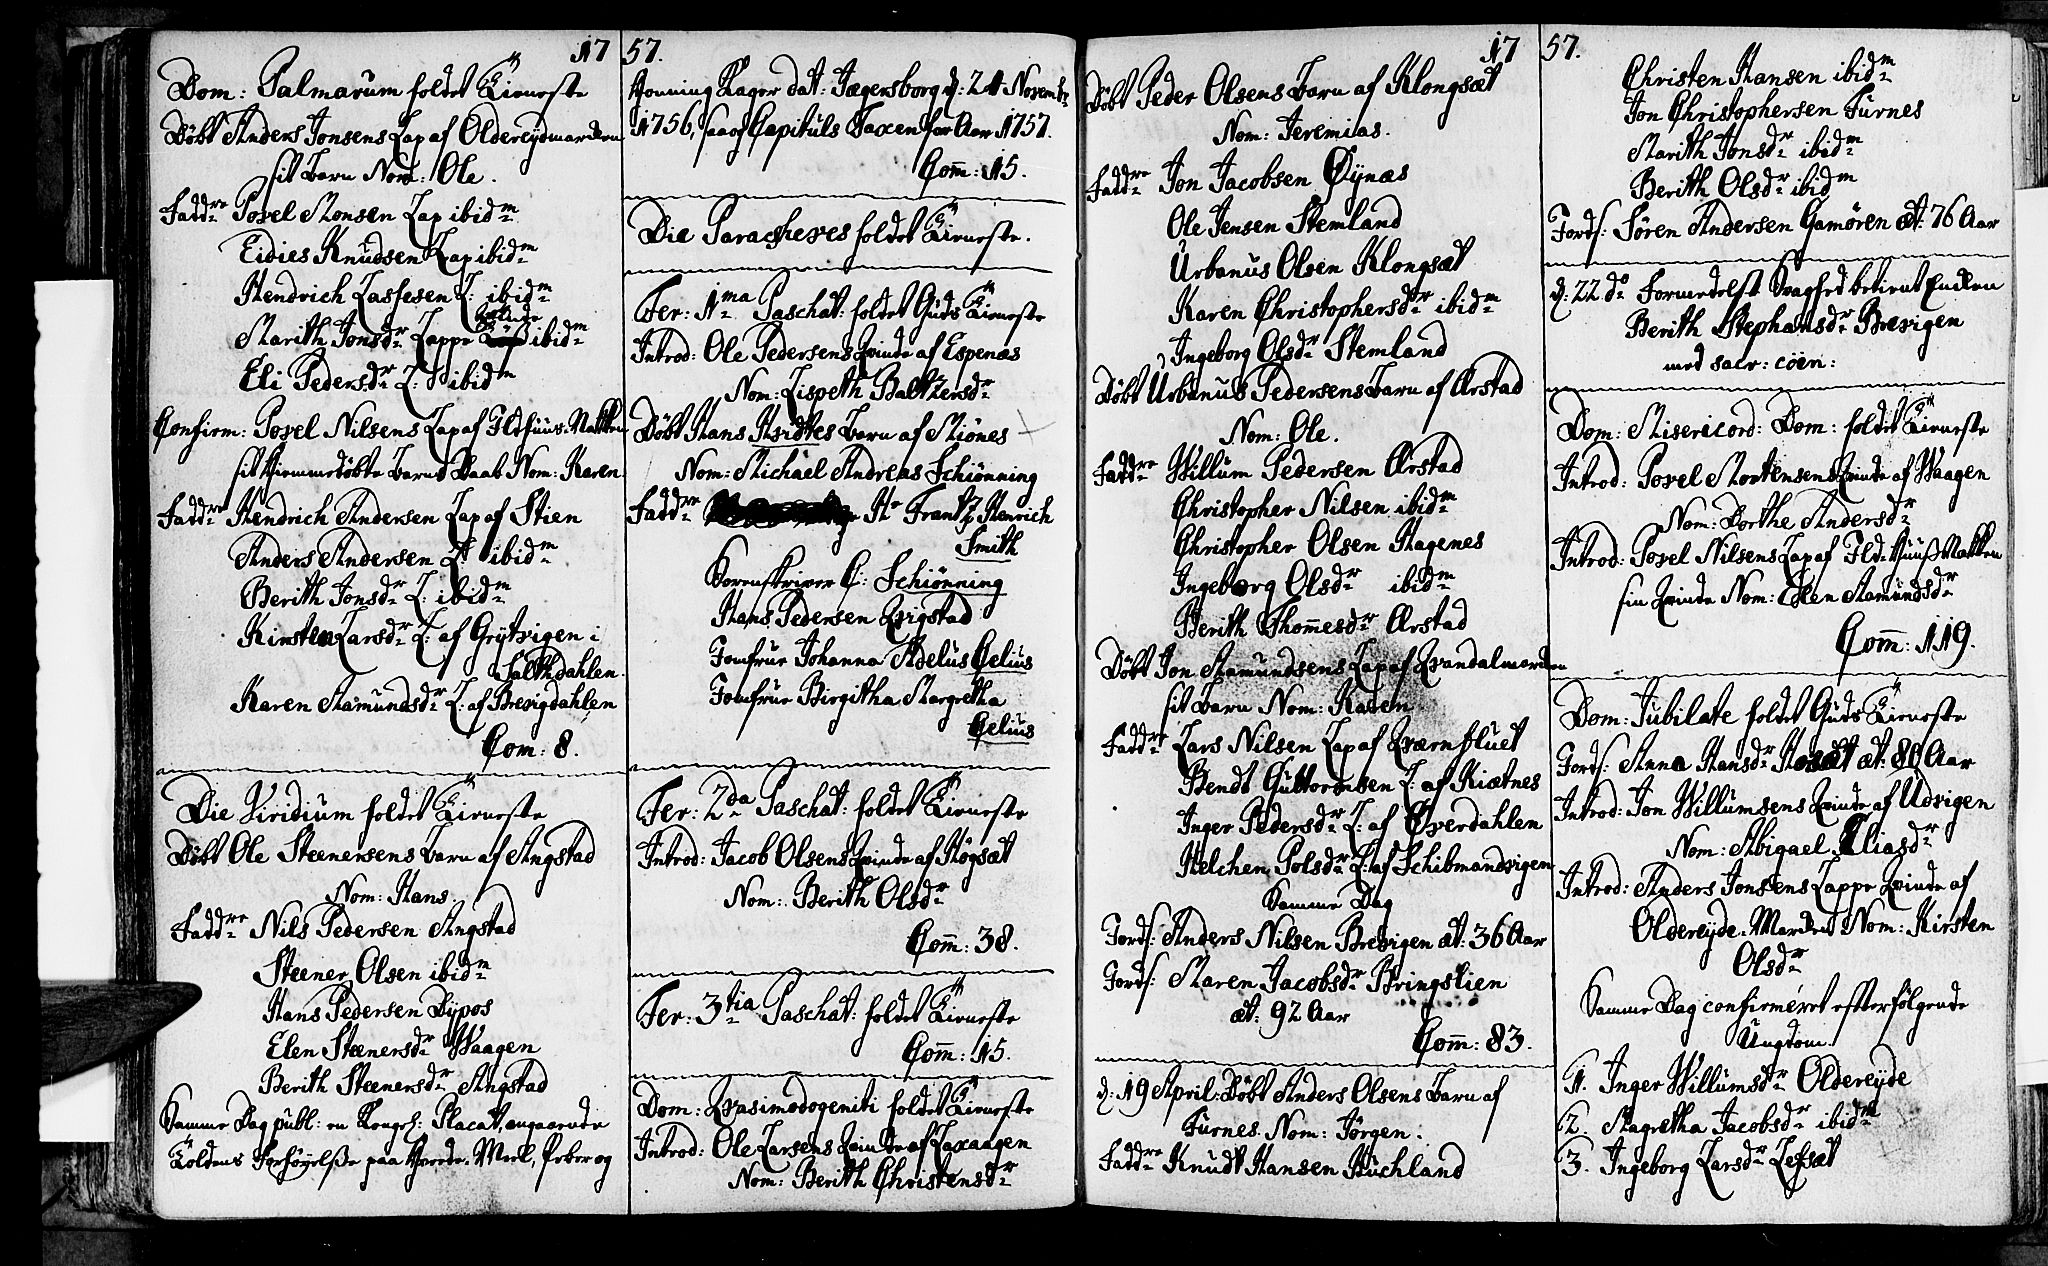 17
Dom: Palmarum holdet Kirneste
Döbt Anders Jonsens Lap af Oldereydmarchen
sit Barn Nom: Ole.
Fadd:re Povel Monsen Lap ibid:m
Eidies Knudsen Lap ibid:m
Hendrich Lassesen L: ibid:m
Marith Jonsd:r Lappe ibid:m
Eli Pedersd:r L: ibid:m
Confirm: Povel Nilsens Lap af Ildhuus-Nakken
sit hiemmedöbte Barns Daab Nom: Karen
Fadd:re Hendrich Andersen Lap af Stien
Anders Andersen L: ibid:m
Berith Jonsd:r L: ibid:m
Kirsten Larsd:r L: af Grytvigen i
Saltdahlen.
Karen Amundsd:r L: af Brevigdahlen
Com: 8.
Die Viridium holdet Kirneste
Döbt Ole Steenersens Barn af Angstad
Nom: Hans
Fadd:re Nils Pedersen Angstad
Steener Olsen ibid:m
Hans Pedersen Dypos
Elen Steenersd:r Waagen
Berith Steenersd:r Angstad
Samme Dag publ: en Kongel: Placat, angaaende
Toldens Forhöyelße paa Hvede-Meel, Peber og
57.
Honning Kager dat: Jægersborg d: 24 Novemb:
1756, saa og Capituls Taxen for Aar 1757.
Com̄: 15.
Die Parascheves holdet Kirneste.
Fer: 1ma Paschat: holdet Guds Kirneste
Introd: Ole Pedersens Qvinde af Espenæs
Nom: Lispeth Baltzersd:r
Döbt Hans Hvidtes Barn af Miönes
Nom: Michael Andreas Schiönning
Fadd:re Hr Frantz Henrich
Smith
Sorenskriver C: Schiönning
Hans Pedersen Qvigstad
Jomfrue Johanna Adelus Gelius
Jomfrue Birgitha Margretha
Gelius
Fer: 2da Paschat: holdet Kirneste
Introd: Jacob Olsens Qvinde af Högsæt
Nom: Berith Olsd:r
Com̄: 38.
Fer: 3tia Paschat: holdet Kirneste
Com̄: 15.
Dom: Qvasimodogeniti holdet Kirneste
Introd: Ole Larsens Qvinde af Laxaagen
Nom: Berith Christensd:r
17
Döbt Peder Olsens Barn af Klongsæt
Nom: Jeremias.
Fadd:re Jon Jacobsen Öynæs
Ole Jensen Stemland
Urbanus Olsen Klongsæt
Karen Christophersd:r ibid:m
Ingeborg Olsd:r Stemland
Döbt Urbanus Pedersens Barn af Arstad
Nom: Ole.
Fadd:re Willum Pedersen Arstad
Christopher Nilsen ibid:m
Christopher Olsen Hagenes
Ingeborg Olsd:r ibid:m
Berith Thom̄esd:r Arstad
Döbt Jon Amundsens Lap af Qvandalmarchen
sit Barn Nom: Karen
Fadd:re Lars Nilsen Lap af Qværnfluet
Bendt Guttormsen L: af Kiætnes
Inger Pedersd:r L: af Överdahlen
Helchen Polsd:r L: af Schibmandvigen
Samme Dag
Jords: Anders Nilsen Brevigen æt: 36 Aar
Jords: Maren Jacobsd:r Bringslien
æt: 92 Aar
Com̄: 83.
d: 19 April: Döbt Anders Olsens Barn af
Furnes Nom: Jörgen.
Fadd:re Knudt Hansen Huchland
57.
Christen Hansen ibid:m
Jon Christophersen Furnes
Marith Jonsd:r ibid:m
Berith Olsd:r ibid:m
Jords: Sören Andersen Gamören æt: 76 Aar
d: 22 do Formedelst Svaghed betient Enken
Berith Stephansd:r Brevigen
med sacr: coen:
Dom: Misericord: Dom: holdet Kirneste
Introd: Povel Mortensens Qvinde af Waagen
Nom: Dorthe Andersd:r
Introd: Povel Nilsens Lap af Ild-Huuß-Nakken
sin Qvinde Nom: Elen Amundsd:r
Com̄: 119.
Dom: Jubilate holdet Guds Kirneste
Jords: Anna Hansd:r Hosæt æt: 80 Aar
Introd: Jon Willumsens Qvinde af Udvigen
Nom: Abigael Eliasd:r
Introd: Anders Jonsens Lappe Qvinde af
Oldereyde-Marchen Nom: Kirsten
Olsd:r
Samme Dag confirmeret efterfölgende
Ungdom.
1. Inger Willumsd:r Oldereyde
2. Magretha Jacobsd:r ibid:m
3. Ingeborg Larsd:r Lexsæt